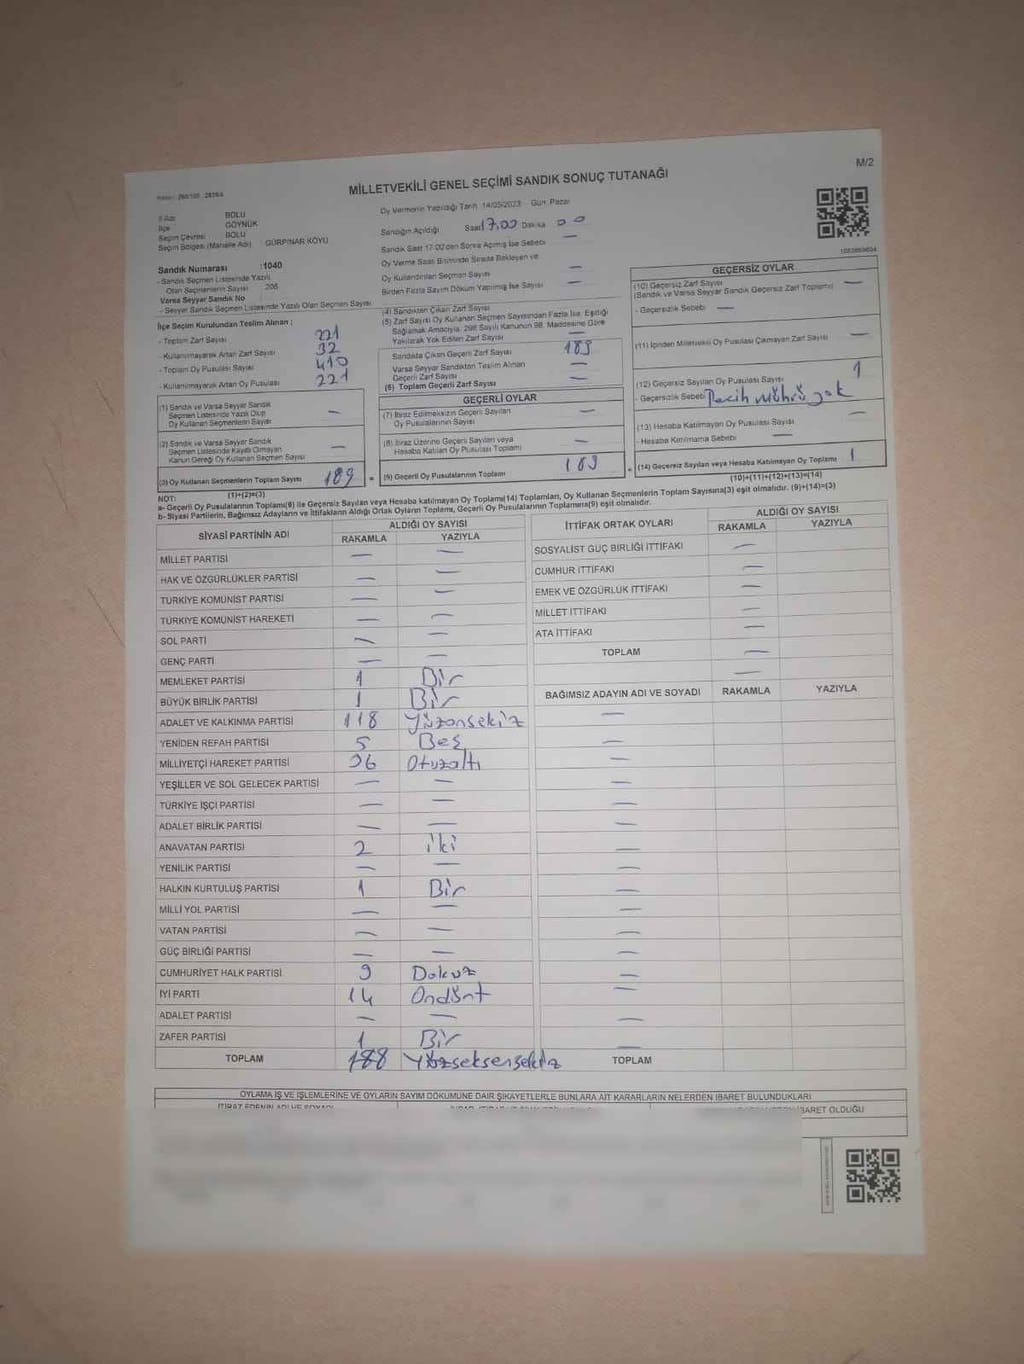 M/2
MİLLETVEKİLİ GENEL SEÇİMİ SANDIK SONUÇ TUTANAĞI
İl Adı BOLU
İlçe GÖYNÜK
Seçim Çevresi BOLU
Seçim Bölgesi (Mahalle Adı) GÜRPINAR KÖYÜ
Sandık Numarası :1040
- Sandık Seçmen Listesinde Yazılı
Olan Seçmenlerin Sayısı 206
Varsa Seyyar Sandık No
- Seyyar Sandık Seçmen Listesinde Yazılı Olan Seçmen Sayısı
İlçe Seçim Kurulundan Teslim Alınan :
- Toplam Zarf Sayısı 221
- Kullanılmayarak Artan Zarf Sayısı 32
- Toplam Oy Pusulası Sayısı 410
- Kullanılmayarak Artan Oy Pusulası 221
(1) Sandık ve Varsa Seyyar Sandık
Seçmen Listesinde Yazılı Olup
Oy Kullanan Seçmenlerin Sayısı —
(2) Sandık ve Varsa Seyyar Sandık
Seçmen Listesinde Kaydı Olmayan
Kanun Gereği Oy Kullanan Seçmen Sayısı —
(3) Oy Kullanan Seçmenlerin Toplam Sayısı 189
(1)+(2)=(3)
Oy Vermenin Yapıldığı Tarih 14/05/2023 Gün: Pazar
Sandığın Açıldığı Saat 17.00 Dakika 00
Sandık Saat 17:00'den Sonra Açılmış İse Sebebi —
Oy Verme Saati Bitiminde Sırada Bekleyen ve
Oy Kullandırılan Seçmen Sayısı —
Birden Fazla Sayım Döküm Yapılmış İse Sayısı —
(4) Sandıktan Çıkan Zarf Sayısı
(5) Zarf Sayısı Oy Kullanan Seçmen Sayısından Fazla İse, Eşitliği
Sağlamak Amacıyla, 298 Sayılı Kanunun 98. Maddesine Göre
Yakılarak Yok Edilen Zarf Sayısı —
Sandıkta Çıkan Geçerli Zarf Sayısı 189
Varsa Seyyar Sandıktan Teslim Alınan
Geçerli Zarf Sayısı —
(6) Toplam Geçerli Zarf Sayısı —
GEÇERLİ OYLAR
(7) İtiraz Edilmeksizin Geçerli Sayılan
Oy Pusulalarının Sayısı —
(8) İtiraz Üzerine Geçerli Sayılan veya
Hesaba Katılan Oy Pusulası Toplamı —
(9) Geçerli Oy Pusulalarının Toplamı 189
GEÇERSİZ OYLAR
(10) Geçersiz Zarf Sayısı —
(Sandık ve Varsa Seyyar Sandık Geçersiz Zarf Toplamı)
- Geçersizlik Sebebi —
(11) İçinden Milletvekili Oy Pusulası Çıkmayan Zarf Sayısı —
(12) Geçersiz Sayılan Oy Pusulası Sayısı 1
- Geçersizlik Sebebi Tercih mührü yok
(13) Hesaba Katılmayan Oy Pusulası Sayısı —
- Hesaba Katılmama Sebebi —
(14) Geçersiz Sayılan veya Hesaba Katılmayan Oy Toplamı 1
(10)+(11)+(12)+(13)=(14)
NOT:
a- Geçerli Oy Pusulalarının Toplamı(9) ile Geçersiz Sayılan veya Hesaba katılmayan Oy Toplamı(14) Toplamları, Oy Kullanan Seçmenlerin Toplam Sayısına(3) eşit olmalıdır. (9)+(14)=(3)
b- Siyasi Partilerin, Bağımsız Adayların ve İttifakların Aldığı Ortak Oyların Toplamı, Geçerli Oy Pusulalarının Toplamına(9) eşit olmalıdır.
SİYASİ PARTİNİN ADI ALDIĞI OY SAYISI
RAKAMLA YAZIYLA
MİLLET PARTİSİ — —
HAK VE ÖZGÜRLÜKLER PARTİSİ — —
TÜRKİYE KOMÜNİST PARTİSİ — —
TÜRKİYE KOMÜNİST HAREKETİ — —
SOL PARTİ — —
GENÇ PARTİ — —
MEMLEKET PARTİSİ 1 Bir
BÜYÜK BİRLİK PARTİSİ 1 Bir
ADALET VE KALKINMA PARTİSİ 118 Yüzonsekiz
YENİDEN REFAH PARTİSİ 5 Beş
MİLLİYETÇİ HAREKET PARTİSİ 36 Otuzaltı
YEŞİLLER VE SOL GELECEK PARTİSİ — —
TÜRKİYE İŞÇİ PARTİSİ — —
ADALET BİRLİK PARTİSİ — —
ANAVATAN PARTİSİ 2 iki
YENİLİK PARTİSİ — —
HALKIN KURTULUŞ PARTİSİ 1 Bir
MİLLİ YOL PARTİSİ — —
VATAN PARTİSİ — —
GÜÇ BİRLİĞİ PARTİSİ — —
CUMHURİYET HALK PARTİSİ 9 Dokuz
İYİ PARTİ 14 Ondört
ADALET PARTİSİ — —
ZAFER PARTİSİ 1 Bir
TOPLAM 188 Yüzseksensekiz
İTTİFAK ORTAK OYLARI ALDIĞI OY SAYISI
RAKAMLA YAZIYLA
SOSYALİST GÜÇ BİRLİĞİ İTTİFAKI —
CUMHUR İTTİFAKI —
EMEK VE ÖZGÜRLÜK İTTİFAKI —
MİLLET İTTİFAKI —
ATA İTTİFAKI —
TOPLAM —
BAĞIMSIZ ADAYIN ADI VE SOYADI RAKAMLA YAZIYLA
TOPLAM
OYLAMA İŞ VE İŞLEMLERİNE VE OYLARIN SAYIM DÖKÜMÜNE DAİR ŞİKAYETLERLE BUNLARA AİT KARARLARIN NELERDEN İBARET BULUNDUKLARI
İBARET OLDUĞU